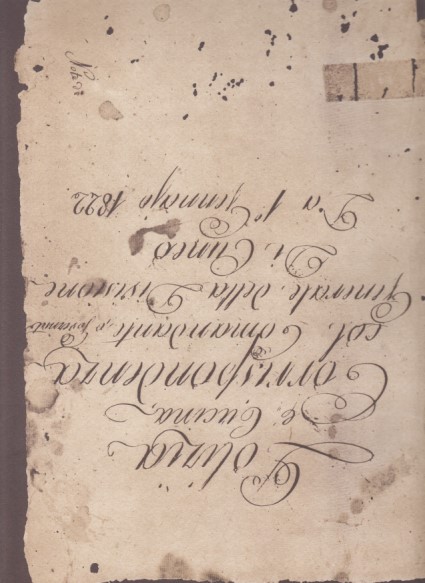 Polizia
E. Cucina,
Corrispondenza
col. Comandante, e Governat.
Generale, della Divisione
Di Cuneo
D a 1° Gennajo 1822